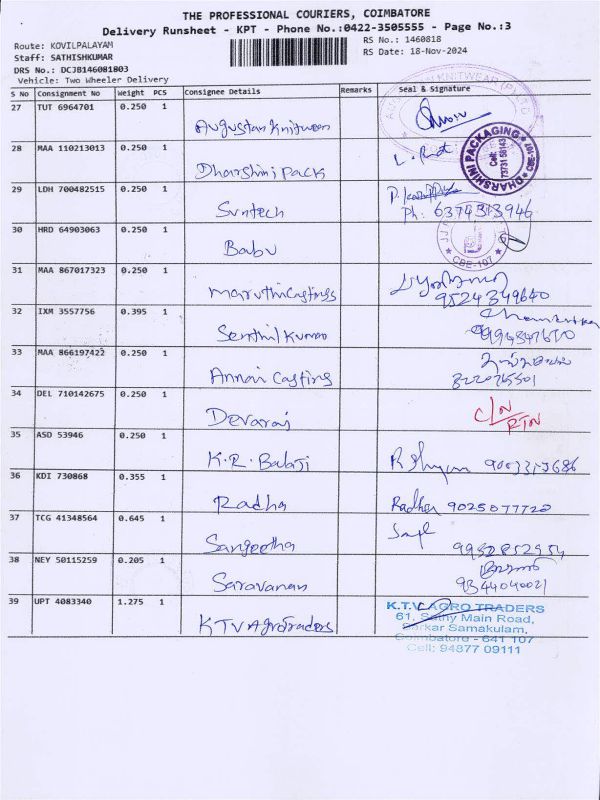 THE PROFESSIONAL COURIERS, COIMBATORE
Delivery Runsheet - KPT - Phone No.:0422-3505555 - Page No.:3
Route: KOVILPALAYAM
RS No.: 1460818
Staff: SATHISHKUMAR
RS Date: 18-Nov-2024
DRS No.: DCJB146081803
Vehicle: Two Wheeler Delivery
S No Consignment No Weight PCS Consignee Details Remarks Seal & Signature
27 TUT 6964701 0.250 1
Augustan Knitwear
28 MAA 110213013 0.250 1
Dharshini Packs
DHARSHINI PACKAGING
Cell:
CBE-107
29 LDH 700482515 0.250 1
Suntech
Ph: 6374313946
30 HRD 64903063 0.250 1
Babu
CBE-107
31 MAA 867017323 0.250 1
Maruthi Castings
9524349640
32 IXM 3557756 0.395 1
Senthil Kumar
33 MAA 866197422 0.250 1
Annai Casting
34 DEL 710142675 0.250 1
Devaraj
C/N
RTN
35 ASD 53946 0.250 1
K.R. Balaji
36 KDI 730868 0.355 1
Radha
Radha 9025077728
37 TCG 41348564 0.645 1
Sangeetha
38 NEY 50115259 0.205 1
Saravanan
9344040021
39 UPT 4083340 1.275 1
KTV Agro Traders
K.T.V. AGRO TRADERS
61, Sathy Main Road,
Sarkar Samakulam,
Coimbatore - 641 107
Cell: 94877 09111